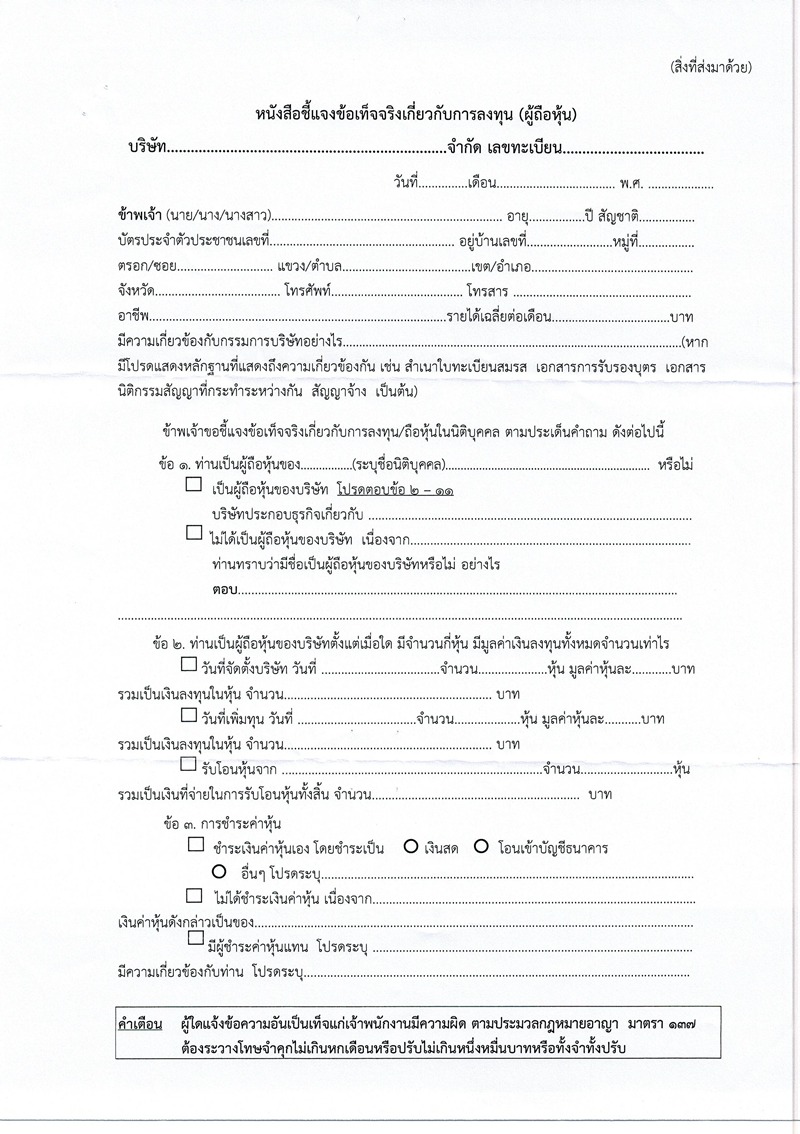 (สิ่งที่ส่งมาด้วย)
หนังสือชี้แจงข้อเท็จจริงเกี่ยวกับการลงทุน (ผู้ถือหุ้น)
บริษัท......................................................................จำกัด เลขทะเบียน...................................
วันที่...............เดือน.................................... พ.ศ. ....................
ข้าพเจ้า (นาย/นาง/นางสาว)...................................................................... อายุ.................ปี สัญชาติ.................
บัตรประจำตัวประชาชนเลขที่........................................................ อยู่บ้านเลขที่..........................หมู่ที่.................
ตรอก/ซอย............................. แขวง/ตำบล.......................................เขต/อำเภอ.................................................
จังหวัด...................................... โทรศัพท์........................................ โทรสาร ......................................................
อาชีพ..........................................................................................รายได้เฉลี่ยต่อเดือน....................................บาท
มีความเกี่ยวข้องกับกรรมการบริษัทอย่างไร.......................................................................................................(หาก
มีโปรดแสดงหลักฐานที่แสดงถึงความเกี่ยวข้องกัน เช่น สำเนาใบทะเบียนสมรส เอกสารการรับรองบุตร เอกสาร
นิติกรรมสัญญาที่กระทำระหว่างกัน สัญญาจ้าง เป็นต้น)
ข้าพเจ้าขอชี้แจงข้อเท็จจริงเกี่ยวกับการลงทุน/ถือหุ้นในนิติบุคคล ตามประเด็นคำถาม ดังต่อไปนี้
ข้อ ๑. ท่านเป็นผู้ถือหุ้นของ................(ระบุชื่อนิติบุคคล).............................................................. หรือไม่
☐ เป็นผู้ถือหุ้นของบริษัท โปรดตอบข้อ ๒ – ๑๑
บริษัทประกอบธุรกิจเกี่ยวกับ ..................................................................................................
☐ ไม่ได้เป็นผู้ถือหุ้นของบริษัท เนื่องจาก.....................................................................................
ท่านทราบว่ามีชื่อเป็นผู้ถือหุ้นของบริษัทหรือไม่ อย่างไร
ตอบ.....................................................................................................................................
..........................................................................................................................................................................
ข้อ ๒. ท่านเป็นผู้ถือหุ้นของบริษัทตั้งแต่เมื่อใด มีจำนวนกี่หุ้น มีมูลค่าเงินลงทุนทั้งหมดจำนวนเท่าไร
☐ วันที่จัดตั้งบริษัท วันที่ ....................................จำนวน.....................หุ้น มูลค่าหุ้นละ............บาท
รวมเป็นเงินลงทุนในหุ้น จำนวน............................................................... บาท
☐ วันที่เพิ่มทุน วันที่ ....................................จำนวน....................หุ้น มูลค่าหุ้นละ...........บาท
รวมเป็นเงินลงทุนในหุ้น จำนวน............................................................... บาท
☐ รับโอนหุ้นจาก ...............................................................................จำนวน............................หุ้น
รวมเป็นเงินที่จ่ายในการรับโอนหุ้นทั้งสิ้น จำนวน............................................................... บาท
ข้อ ๓. การชำระค่าหุ้น
☐ ชำระเงินค่าหุ้นเอง โดยชำระเป็น ○ เงินสด ○ โอนเข้าบัญชีธนาคาร
○ อื่นๆ โปรดระบุ.................................................................................................................
☐ ไม่ได้ชำระเงินค่าหุ้น เนื่องจาก..................................................................................................
เงินค่าหุ้นดังกล่าวเป็นของ.....................................................................................................................................
☐ มีผู้ชำระค่าหุ้นแทน โปรดระบุ .................................................................................................
มีความเกี่ยวข้องกับท่าน โปรดระบุ.....................................................................................................................
คำเตือน ผู้ใดแจ้งข้อความอันเป็นเท็จแก่เจ้าพนักงานมีความผิด ตามประมวลกฎหมายอาญา มาตรา ๑๓๗
ต้องระวางโทษจำคุกไม่เกินหกเดือนหรือปรับไม่เกินหนึ่งหมื่นบาทหรือทั้งจำทั้งปรับ